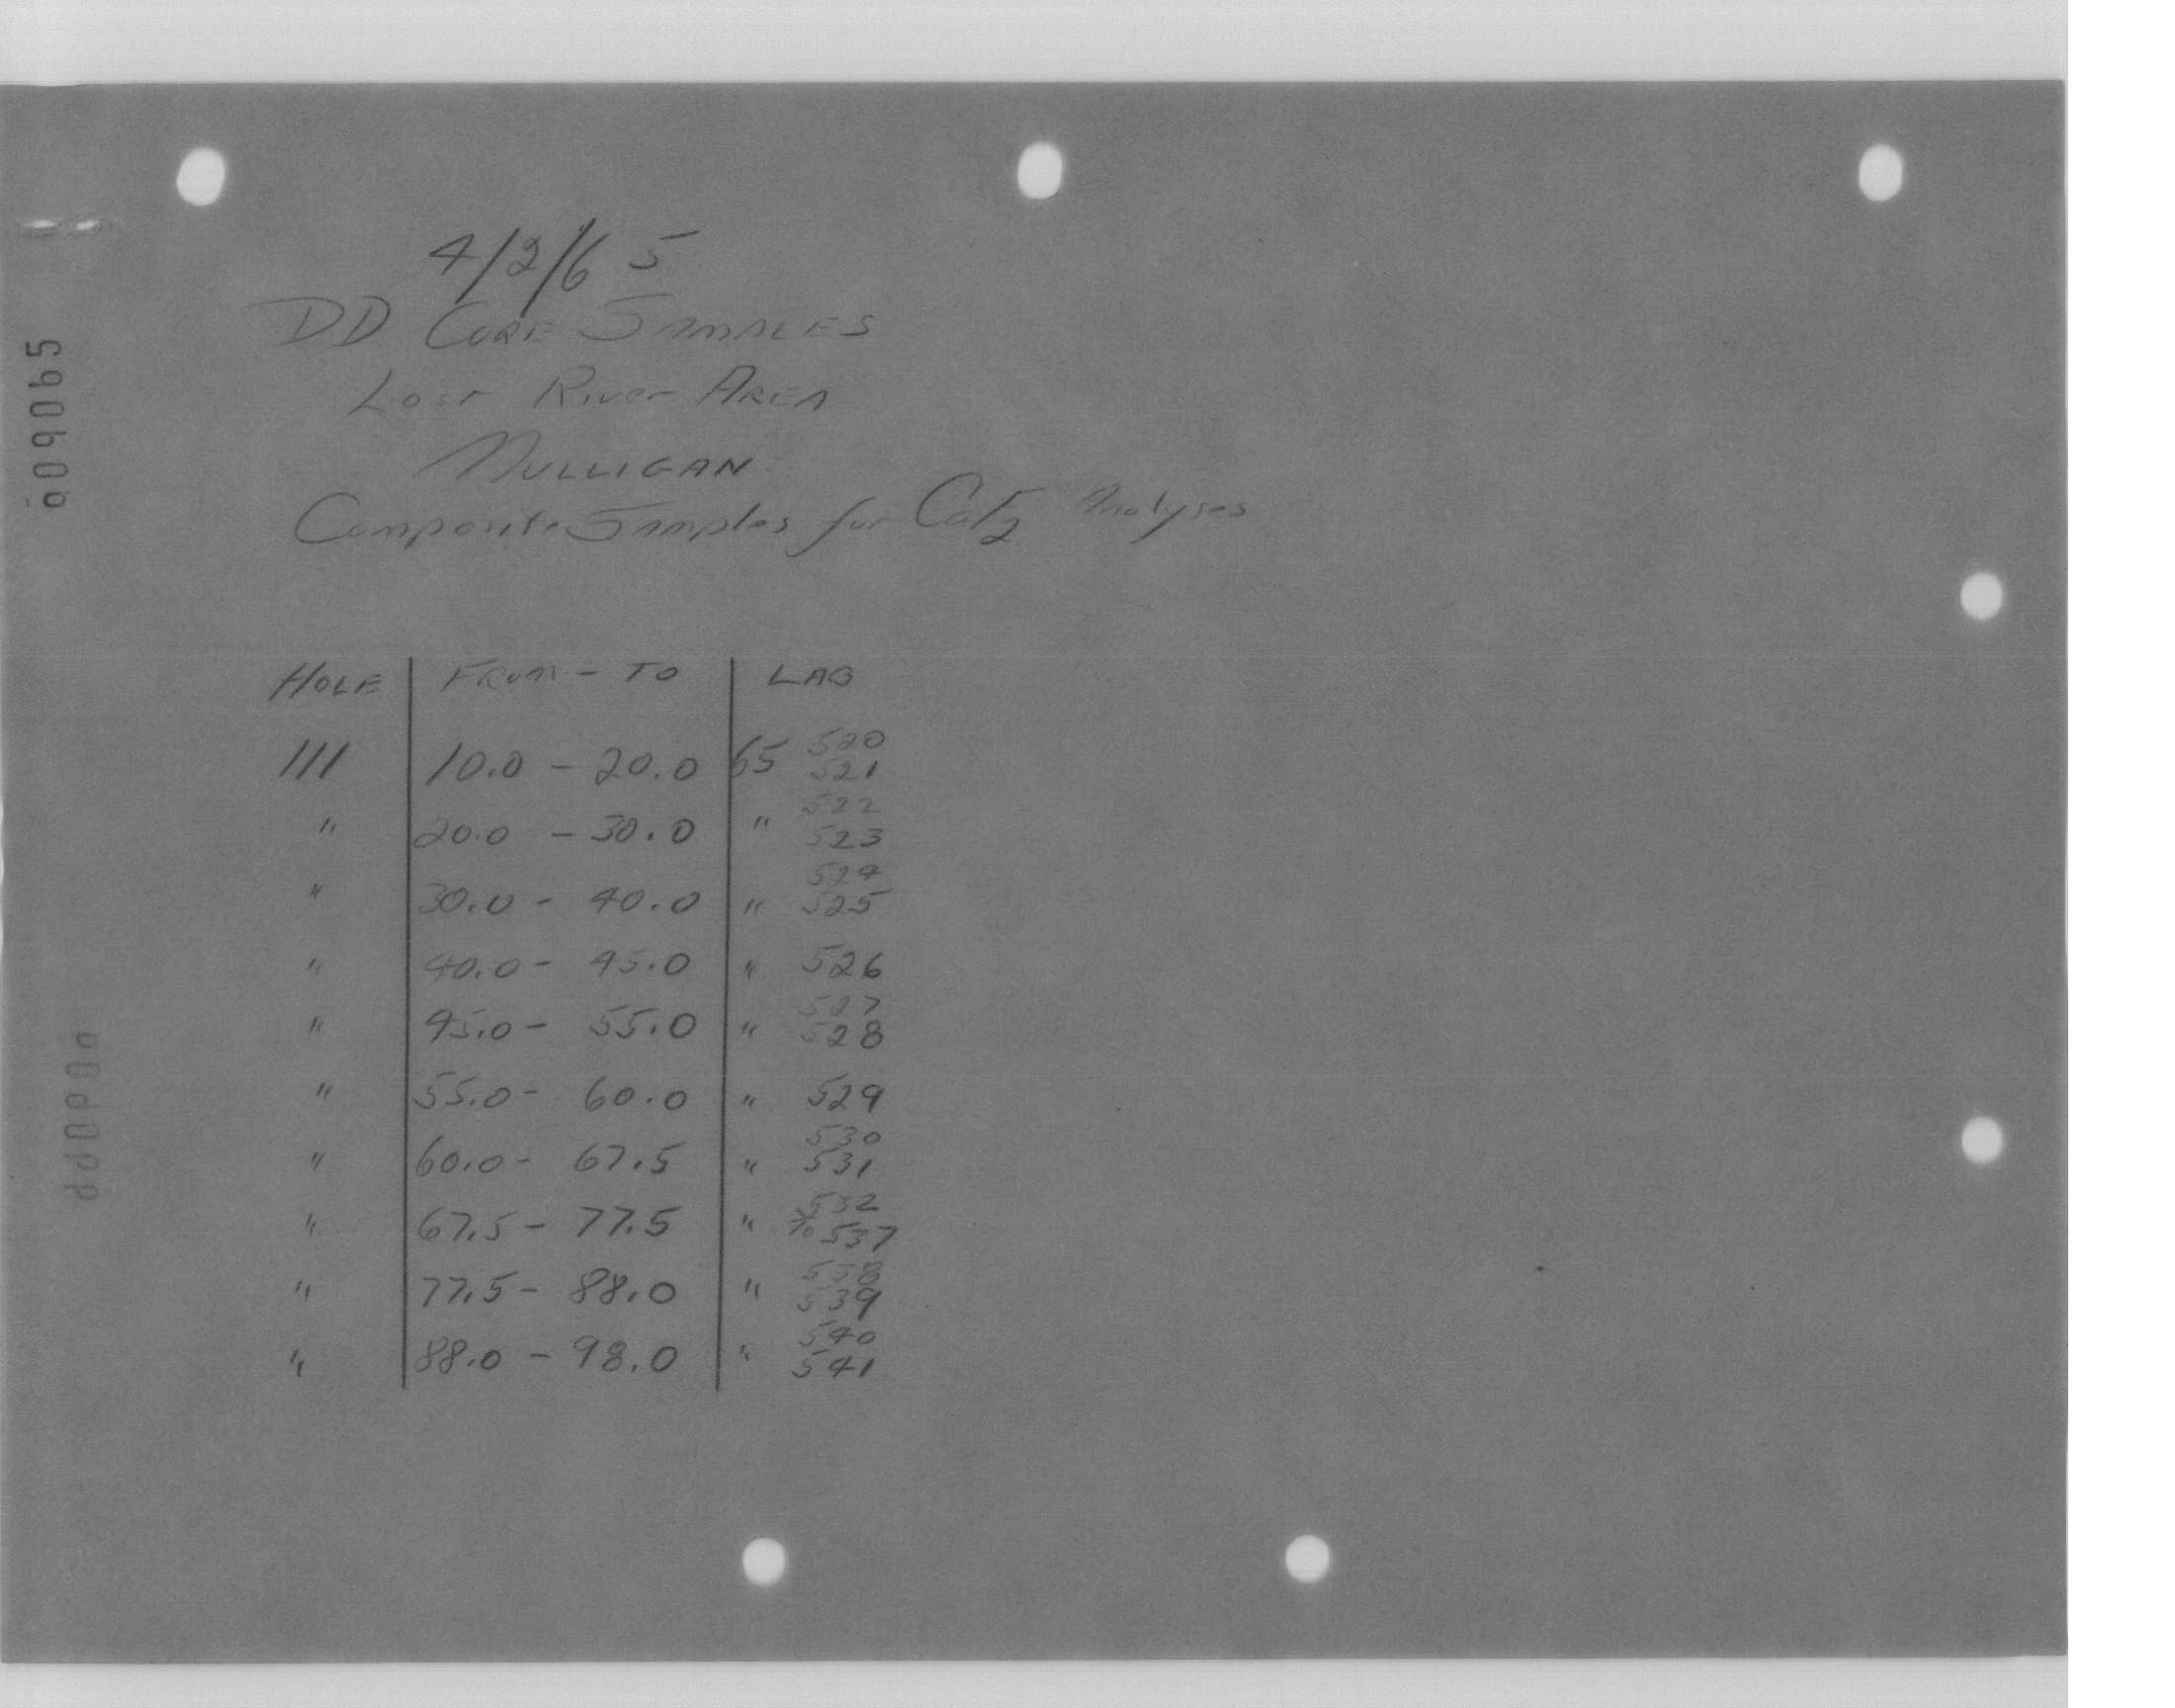 4/2/65
DD CORE SAMPLES
LOST RIVER AREA
MULLIGAN
Composite Samples for CaF2 Analyses
HOLE FROM - TO LAB
111 10.0 - 20.0 65 520
521
" 20.0 - 30.0 " 522
523
" 30.0 - 40.0 " 524
525
" 40.0 - 45.0 " 526
" 45.0 - 55.0 " 527
528
" 55.0 - 60.0 " 529
" 60.0 - 67.5 " 530
531
" 67.5 - 77.5 " 532
To 537
" 77.5 - 88.0 " 538
539
" 88.0 - 98.0 " 540
541